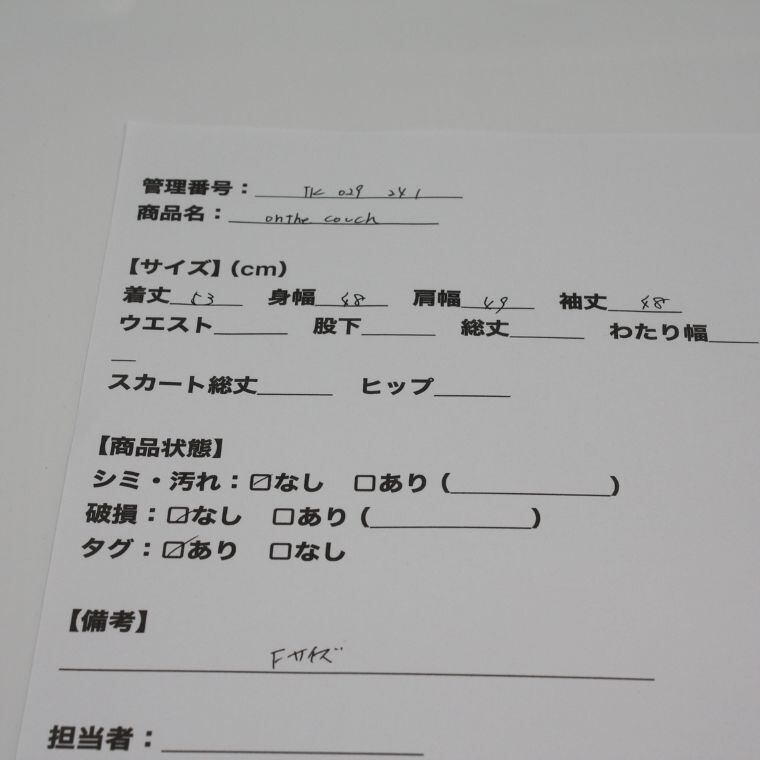 管理番号：TK 029 241
商品名：onthe couch
【サイズ】（cm）
着丈 53 身幅 48 肩幅 49 袖丈 48
ウエスト______ 股下______ 総丈______ わたり幅____
__
スカート総丈______ ヒップ______
【商品状態】
シミ・汚れ：☑なし □あり（______________）
破損：☑なし □あり（______________）
タグ：☑あり □なし
【備考】
Fサイズ
担当者：______________